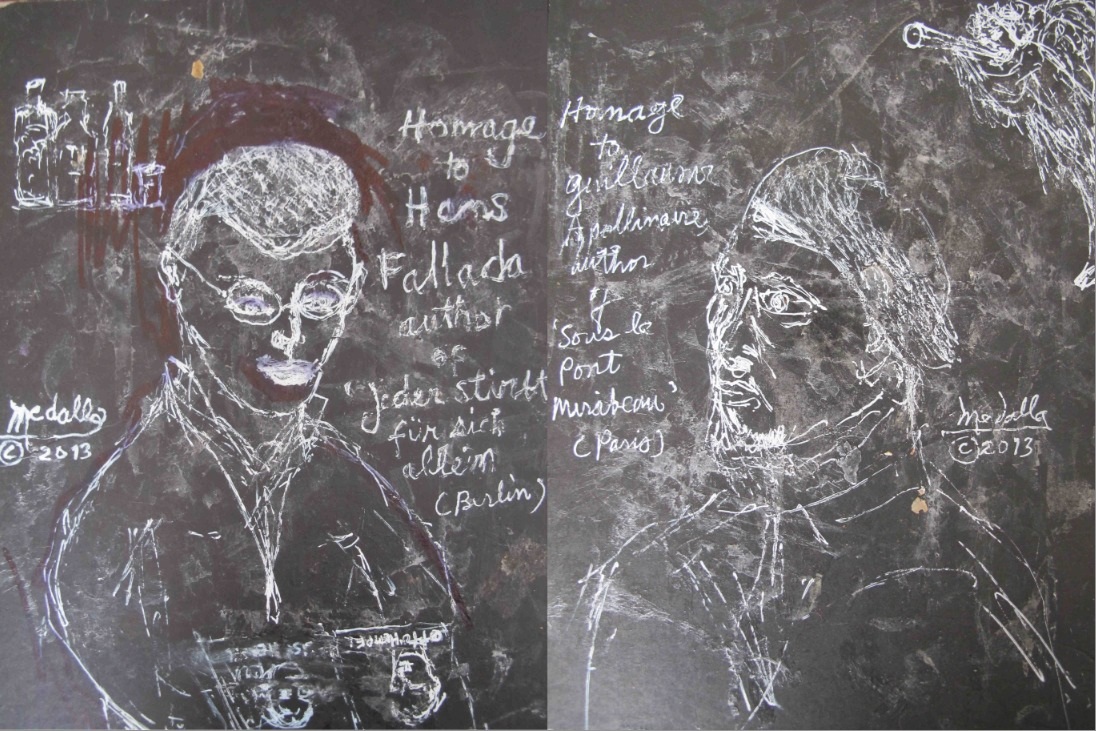 Homage
to
Hans
Fallada
author
of
'Jeder stirbt
für sich
allein
(Berlin)
Medalla
© 2013
Homage
to
guillaume
Apollinaire,
author
of
'Sous le
Pont
Mirabeau'
(Paris)
Medalla
© 2013